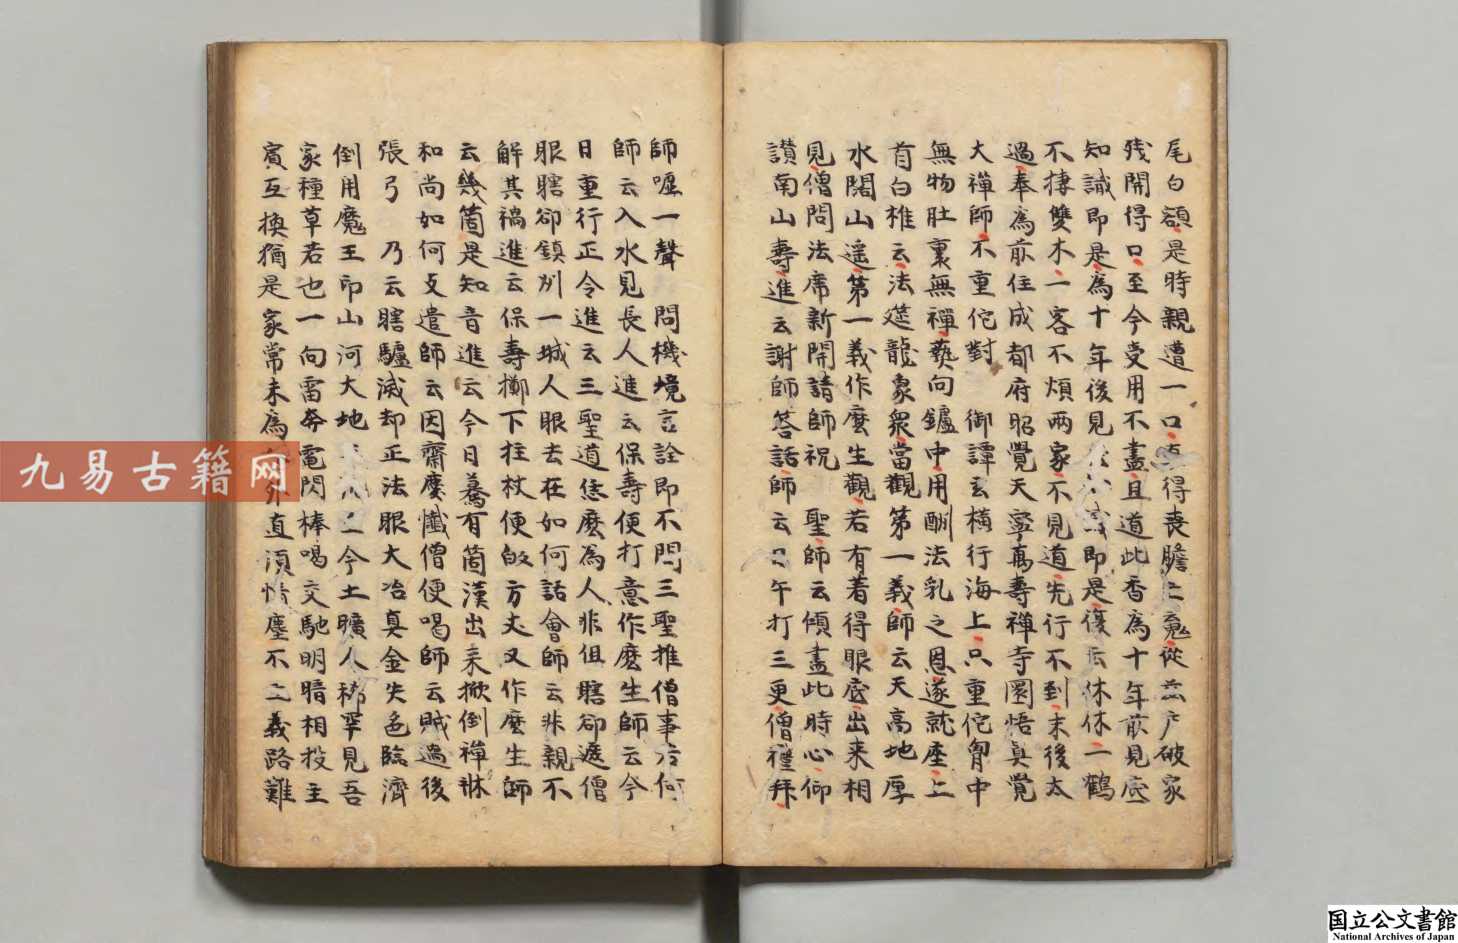 尾白額是時親遭一口直得喪膽亡魂從茲户破家
殘開得口至今受用不盡且道此香為十年前見底
知識即是為十年後見即是復云休休二鶴
不捿雙木一客不煩兩家不見道先行不到末後太
過奉為前住成都府昭覺天寧萬壽禪寺圜悟真覺
大禪師不重佗對御譚玄橫行海上只重佗胷中
無物肚裏無禪爇向鑪中用酬法乳之恩遂就座上
首白椎云法筵龍象衆當觀第一義師云天高地厚
水闊山遥第一義作麽生觀若有著得眼底出来相
見僧問法席新開請師祝聖師云傾盡此時心仰
讃南山壽進云謝師答話師云日午打三更僧禮拜
師嘘一聲問機境言詮即不問三聖推僧事若何
師云入水見長人進云保壽便打意作麽生師云今
日重行正令進云三聖道恁麽為人非但瞎卻遮僧
眼瞎卻鎮州一城人眼去在如何話會師云非親不
解其禍進云保壽擲下拄杖便皈方丈又作麽生師
云幾箇是知音進云今日驀有箇漢出来掀倒禪牀
和尚如何支遣師云因齋慶懺僧便喝師云賊過後
張弓乃云瞎驢滅却正法眼大冶真金失色臨濟
倒用魔王印山河大地今土曠人稀罕見吾
家種草若也一向雷奔電閃棒喝交馳明暗相投主
賓互換猶是家常未為外直須情塵不立義路難
九易古籍网
国立公文書館
National Archives of Japan